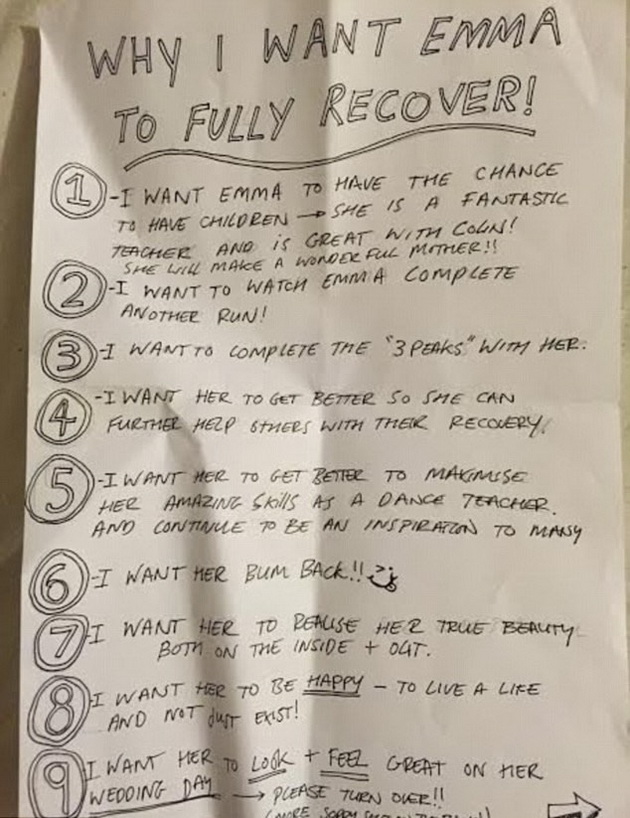 WHY I WANT EMMA
TO FULLY RECOVER!
1 -I WANT EMMA TO HAVE THE CHANCE
TO HAVE CHILDREN → SHE IS A FANTASTIC
TEACHER AND IS GREAT WITH COLIN!
SHE WILL MAKE A WONDERFUL MOTHER!!
2 -I WANT TO WATCH EMMA COMPLETE
ANOTHER RUN!
3 -I WANT TO COMPLETE THE "3 PEAKS" WITH HER.
4 -I WANT HER TO GET BETTER SO SHE CAN
FURTHER HELP OTHERS WITH THEIR RECOVERY.
5 -I WANT HER TO GET BETTER TO MAXIMISE
HER AMAZING SKILLS AS A DANCE TEACHER.
AND CONTINUE TO BE AN INSPIRATION TO MANY
6 -I WANT HER BUM BACK!!
7 -I WANT HER TO REALISE HER TRUE BEAUTY
BOTH ON THE INSIDE + OUT.
8 -I WANT HER TO BE HAPPY - TO LIVE A LIFE
AND NOT JUST EXIST!
9 -I WANT HER TO LOOK + FEEL GREAT ON HER
WEDDING DAY → PLEASE TURN OVER!!
(MORE SOPPY